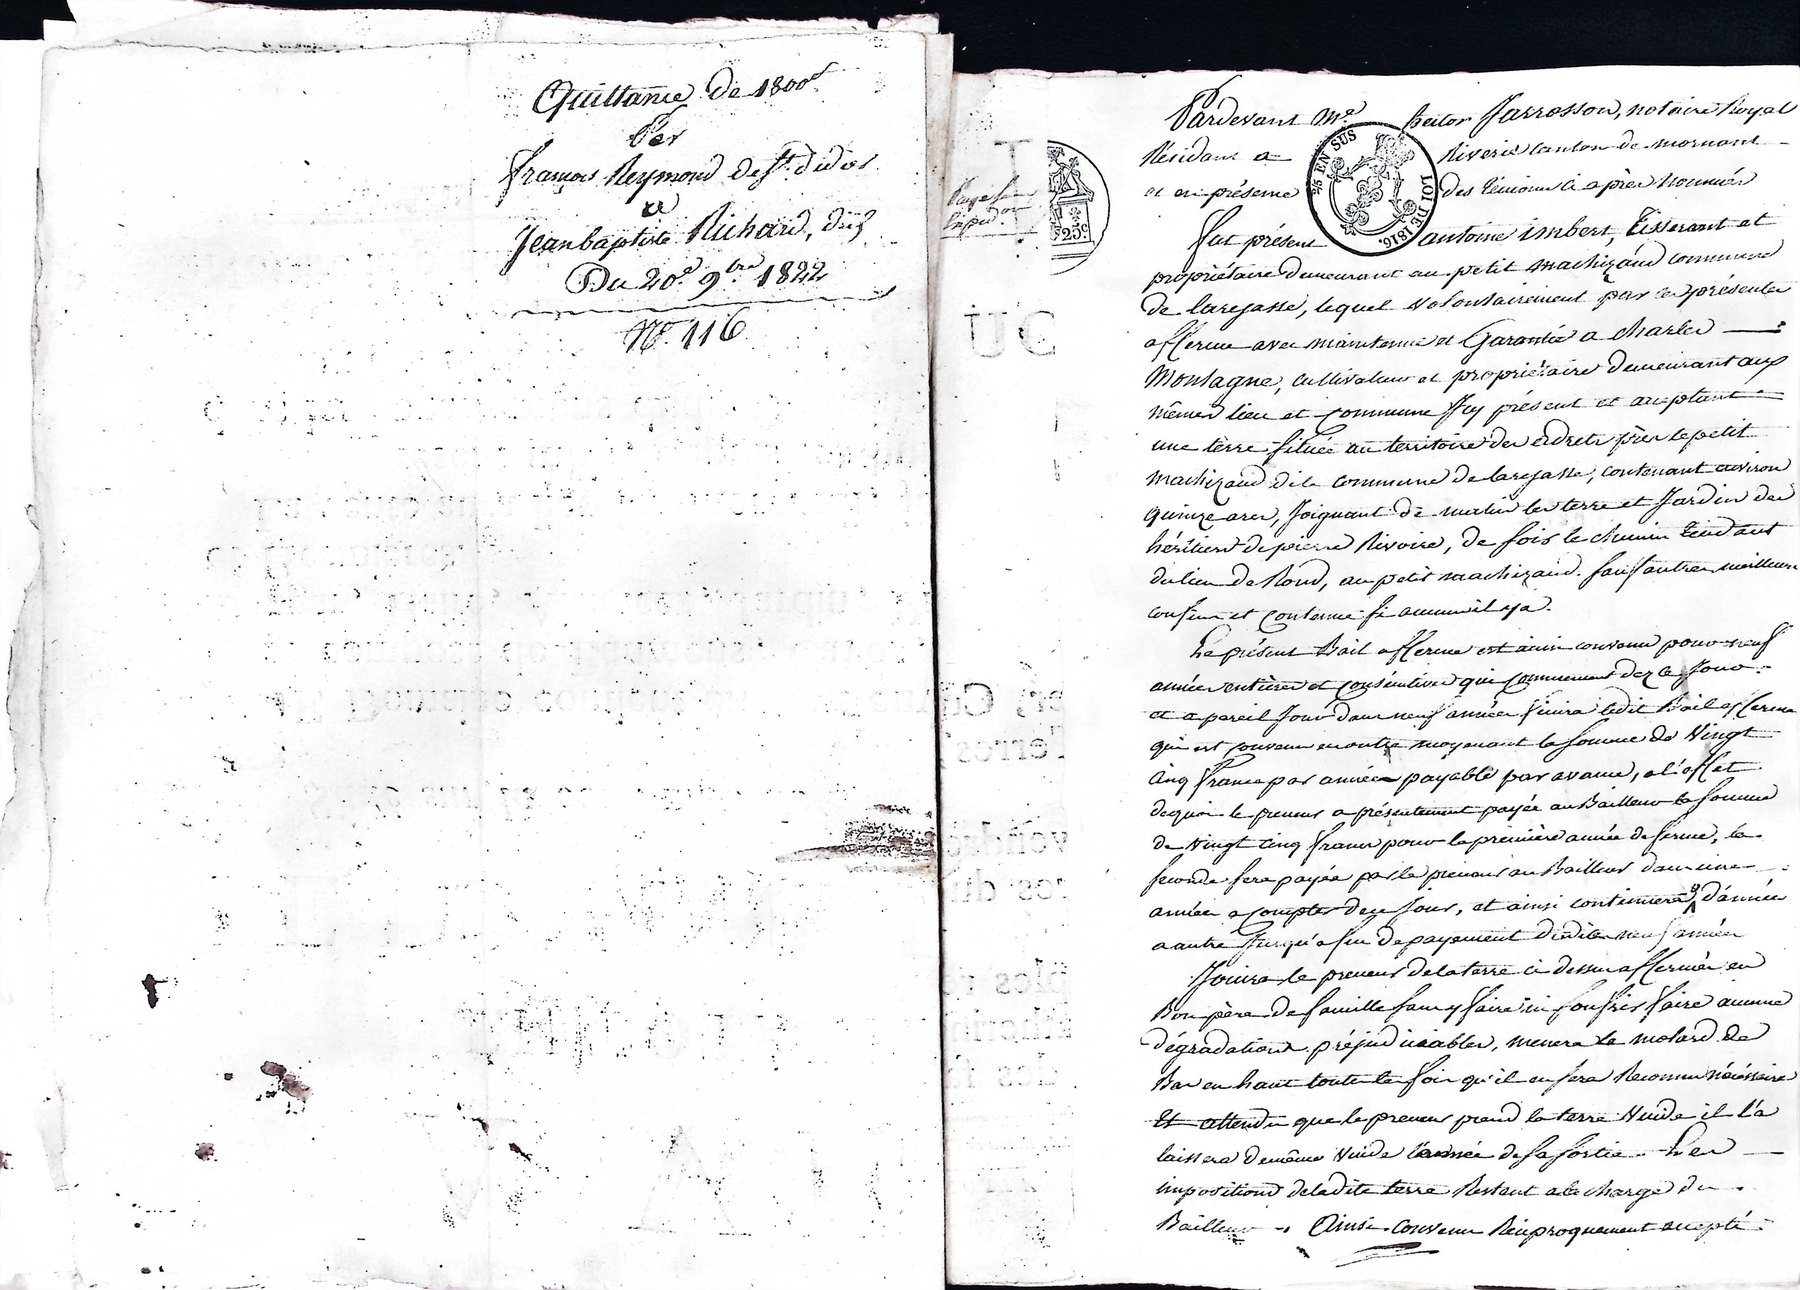 Quittance de 1800f
Par
françois Reymond de St. didier
a
Jean baptiste Richard, dud.
Du 20e. 9bre. 1822
No. 116
Pardevant Me. hector Jarrosson, notaire Royal
Résidant a Riverie canton de mornant
et en présence des témoins ci après nommés
2/5 EN SUS
LOI DE 1816.
25c
fut présent antoine imbert, tisserant et
propriétaire demeurant au petit machizaud commune
de larajasse, lequel volontairement par ces présentes
afferme avec maintenue et Garantie a charles
Montagne, cultivateur et propriétaire demeurant aux
mêmes lieu et commune Icy présent et acceptant
une terre située au territoire des près le petit
machizaud dite commune de larajasse, contenant environ
quinze ares, Joignant de matin les terre et Jardin des
héritiers de pierre Rivoire, de soir le chemin tendant
du lieu de Rond, au petit machizaud. sauf autres meilleurs
confins et contenue si aucuns il y a.
Le présent Bail afferme est ainsi convenu pour neuf
années entières et consécutives qui commencent dez ce Jour
et a pareil Jour dans neuf années finira ledit Bail afferme
qui est convenu en outre moyenant la somme de Vingt
Cinq francs par années payable par avance, a l'effet
dequoi le preneur a présentement payée au Bailleur la somme
de Vingt Cinq francs pour la première année de ferme, la
seconde sera payée par le preneur au Bailleur dans une
années a compter de ce Jour, et ainsi continuera d'année
a autre Jusqu'a fin de payement desdites neuf années
Jouira le preneur de la terre ci dessus affermée en
Bon père de famille sans y faire ni souffrir faire aucune
dégradations préjudiciables, menera le molard de
Bas en haut toutes les fois qu'il en sera Reconnu nécéssaire
Et attendu que le preneur prend la terre Vuide il l'a
laissera de même Vuide l'année de sa sortie. Les
impositions de ladite terre Restent a la charge du
Bailleur. Ainsi convenu Réciproquement accepté